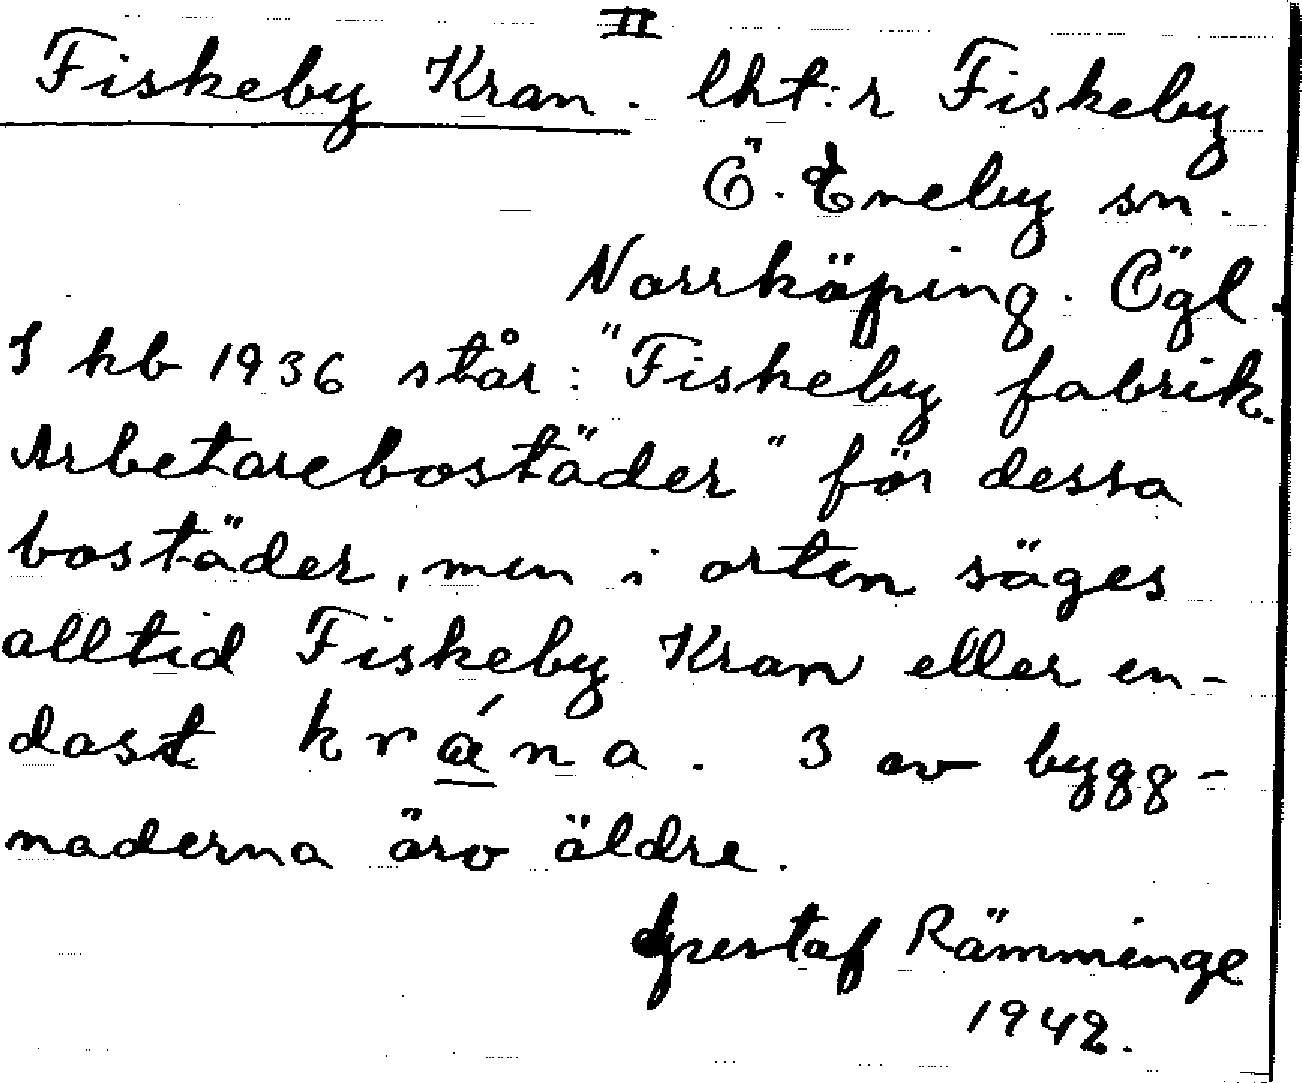 II
Fiskeby Kran. lht:r Fiskeby
Ö. Eneby sn.
Norrköping. Ögl.
I kb 1936 står: "Fiskeby fabrik.
Arbetarebostäder" för dessa
bostäder, men i orten säges
alltid Fiskeby Kran eller en-
dast krána. 3 av bygg-
naderna äro äldre.
Gustaf Rämminge
1942.